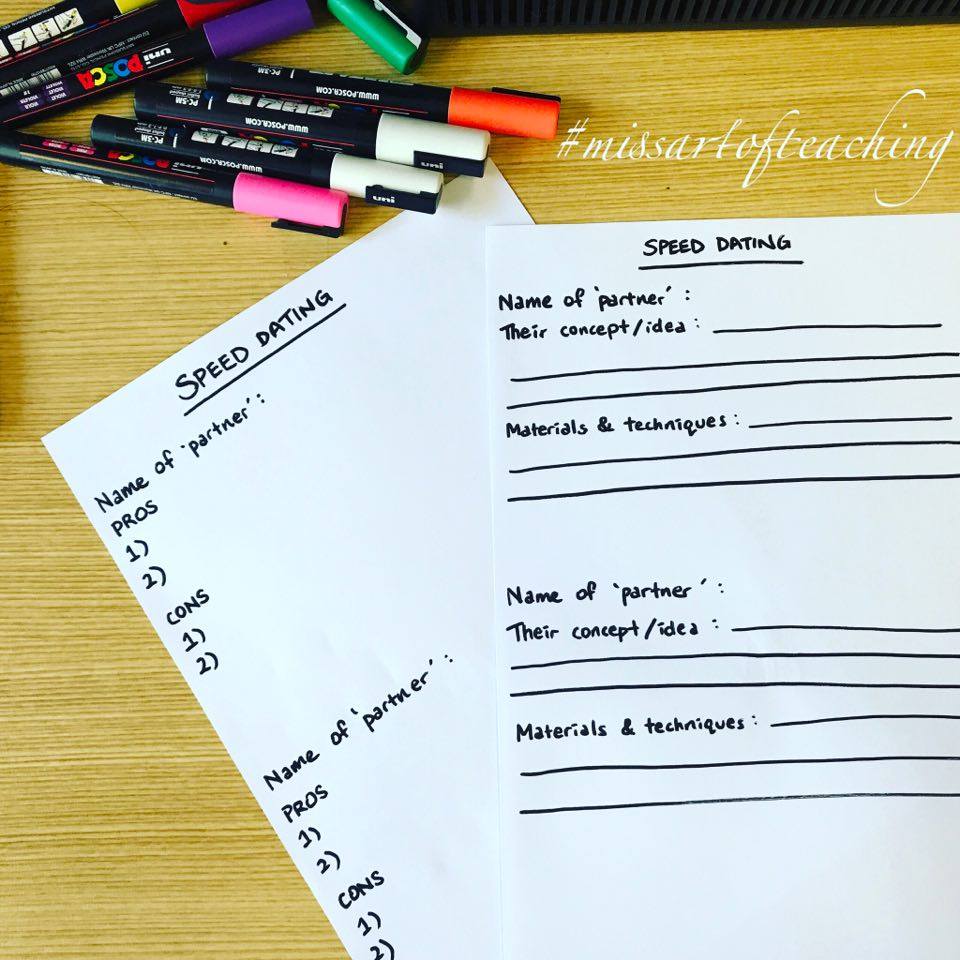 uni POSCA
WWW.POSCA.COM
PC-5M
WWW.POSCA.COM
PC-3M
uni
PC-3M
uni
#missartofteaching
SPEED DATING
Name of 'partner' :
PROS
1)
2)
CONS
1)
2)
Name of 'partner' :
PROS
1)
2)
CONS
1)
2)
SPEED DATING
Name of 'partner' :
Their concept/idea :
Materials & techniques :
Name of 'partner' :
Their concept/idea :
Materials & techniques :